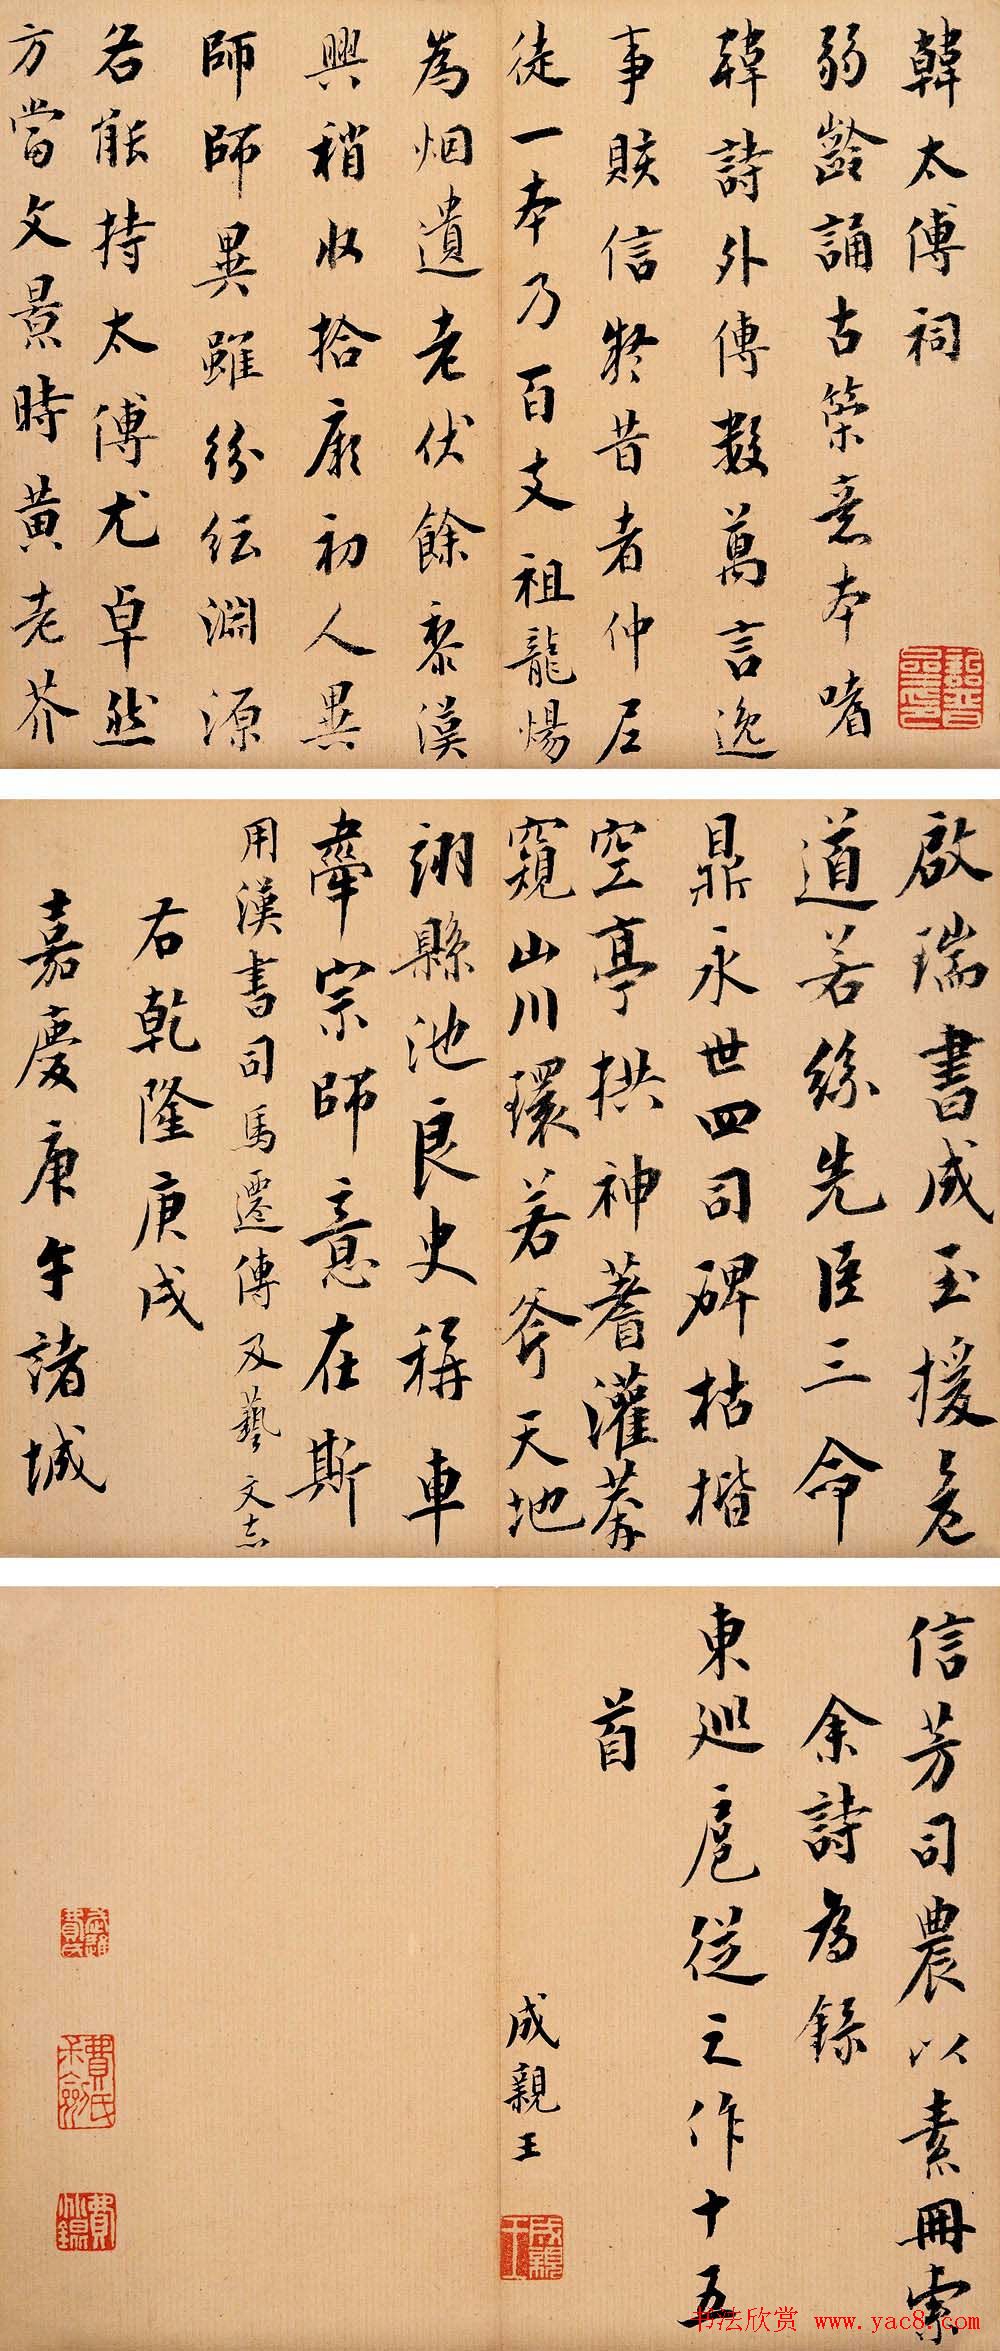 韓太傅祠
弱齡誦古策意本嗜
韓詩外傳數萬言逸
事賅信㩻昔者仲尼
徒一本乃百支祖龍煬
為烟遺老伏餘黎漢
興稍收拾厥初人異
師師異雖紛紜淵源
各能持太傅尤卓然
方當文景時黃老芥
啟瑞書成玉援危
道若絲先臣三命
鼎永世四司碑枯楷
空亭拱神蓍灌莽
窺山川環若斧天地
詡縣池良史稱車
牽宗師意在斯
用漢書司馬遷傳及藝文志
右乾隆庚戌
嘉慶庚午諸城
信芳司農以素冊索
余詩為錄
東巡扈從之作十五
首
成親王
成親王
書法欣赏 www.yac8.com